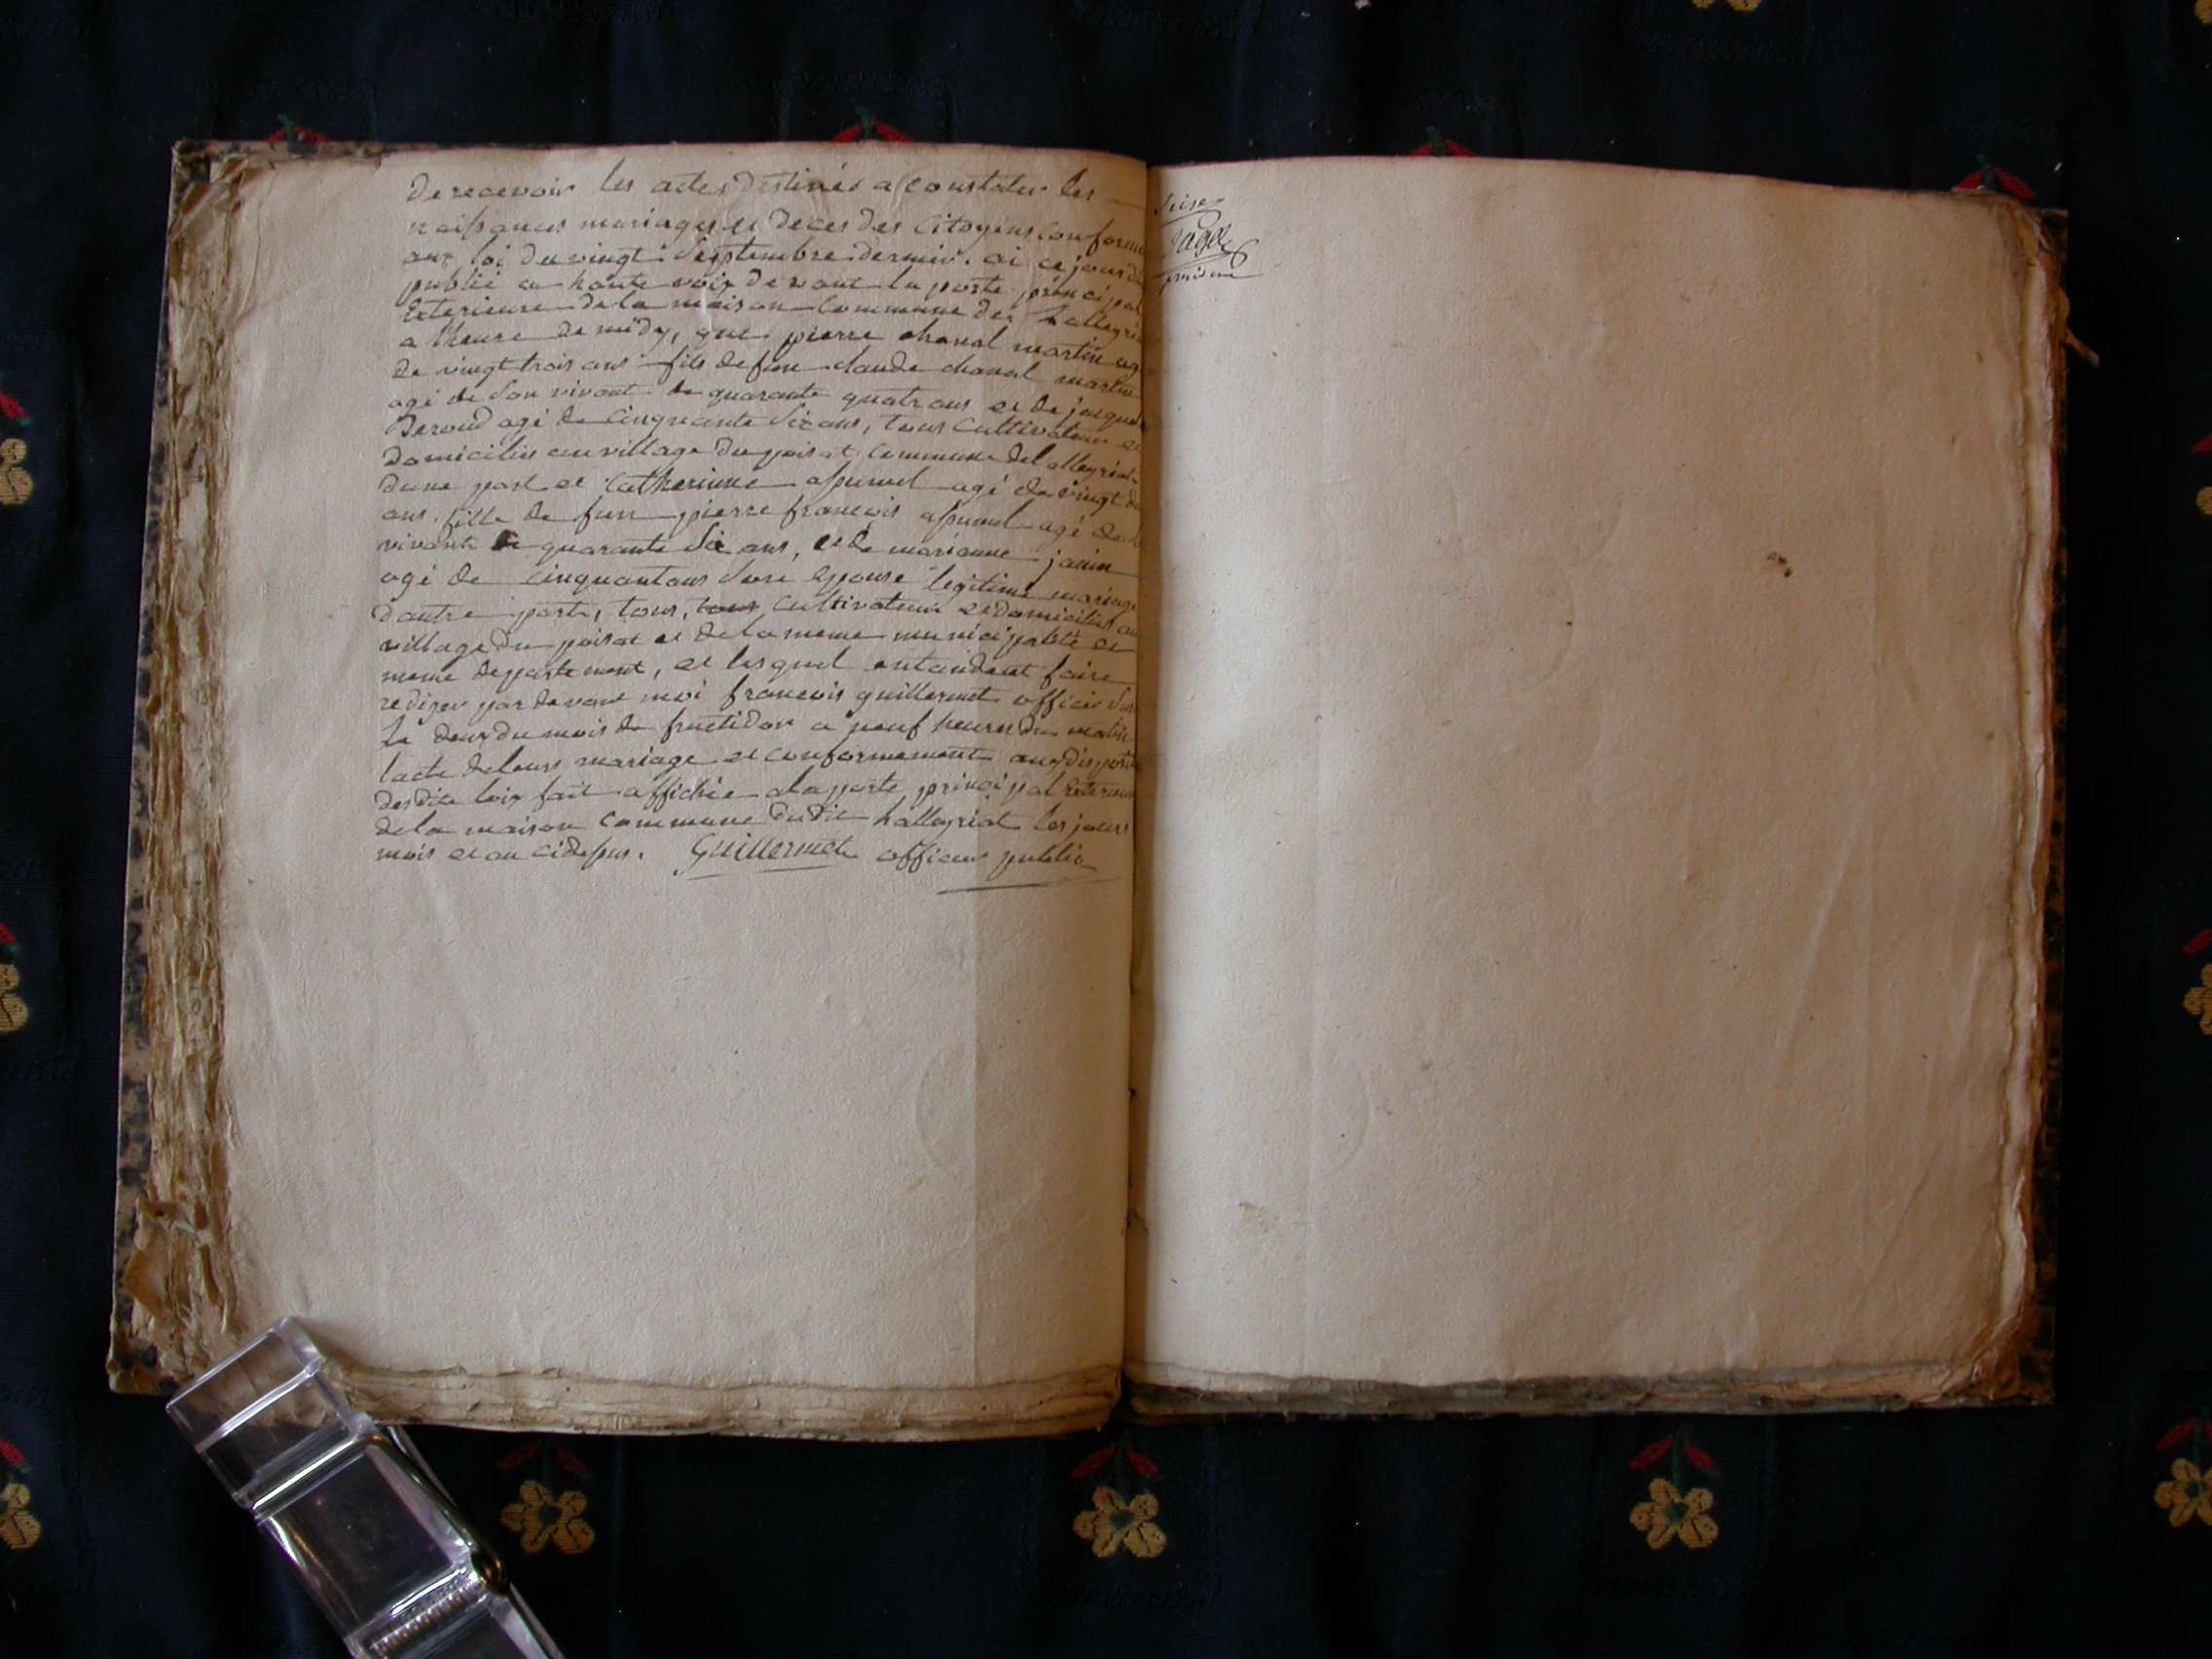 de recevoir les actes destinés a constater les
naissances mariages et deces des Citoyens conforme
aux loi du vingt Septembre dernier. ai ce jour d
publié a haute voix devant la porte principal
Exterieure de la maison Commune des
a lheure de midy, que pierre chanal martin ag
de vingt trois ans fils de feu claude chanal martin
agé de son vivant de quarante quatr ans et de jaqu
Beroud agé de Cinquante Six ans, tous Cultivateur et
domiciliés au village du poisat Commune del allegriat
dune part et Catherinne assumel agé de vingt d
ans fille de feu pierre francois assumel agé de
vivant de quarante Six ans, et de marianne janin
agé de cinquantans epouse legitime mariage
dautre parte, tous, tous Cultivateur et domiciliés au
village du poisat et de la meme municipalité et
meme departement, et lesquel entendent faire
rediger par devant moi francois guillermet officier
le deux du mois de fructidor a neuf heures du matin
lacte de leurs mariage et conformement aux disposi
desdite loix fait affichée ala porte principal Exterieur
de la maison Commune dudit hallegriat les jours
mois et an cidessus. Guillermet officier public
Seise
page